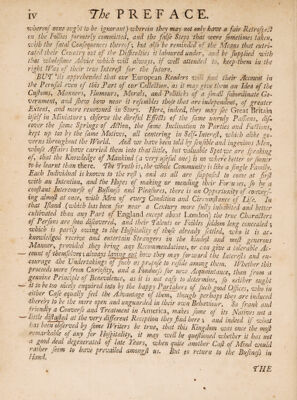 iv The PREFACE.
whereof none ought to be ignorant) wherein they may not only have a fair Retrospect
on the Follies formerly committed, and the false Steps that were sometimes taken,
with the fatal Consequences thereof; but also be reminded of the Means that extri-
cated their Country out of the Difficulties it laboured under, and be supplied with
that wholesome Advice which will always, if well attended to, keep them in the
right Way of their true Interest for the future.
BUT 'tis apprehended that our European Readers will find their Account in
the Perusal even of this Part of our Collection, as it may give them an Idea of the
Customs, Manners, Humours, Morals, and Politicks of a small subordinate Go-
vernment, and shew how much it resembles those that are independent, of greater
Extent, and more renowned in Story. Here, indeed, they may see Great Britain
itself in Miniature; observe the dreadful Effects of the same unruly Passions, dis-
cover the same Springs of Action, the same Inclination to Parties and Factions,
kept up to by the same Motives, all centering in Self-Interest, which alike go-
verns throughout the World. And we have been told by sensible and ingenious Men,
whose Affairs have carried them into that little, but valuable Spot we are speaking
of, that the Knowledge of Mankind (a very useful one) is no where better or sooner
to be learnt than there. The Truth is, the whole Community is like a single Family.
Each Individual is known to the rest, and as all are supposed to come at first
with an Intention, and the Hopes of making or mending their Fortunes, so by a
constant Intercourse of Business and Pleasures, there is an Opportunity of convers-
ing almost at once, with Men of every Condition and Circumstance of Life. In
that Island (which has been for near a Century more fully inhabited and better
cultivated than any Part of England except about London) the true Characters
of Persons are soon discovered, and their Talents or Foibles seldom long concealed;
which is partly owing to the Hospitality of those already settled, who it is ac-
knowledged receive and entertain Strangers in the kindest and most generous
Manner, provided they bring any Recommendations, or can give a tolerable Ac-
count of themselves; always laying out how they may forward the Interests and en-
courage the Undertakings of such as propose to reside among them. Whether this
proceeds more from Curiosity, and a Fondness for new Acquaintance, than from a
genuine Principle of Benevolence, as it is not easy to determine, so neither ought
it to be too nicely enquired into by the happy Partakers of such good Offices, who in
either Case equally feel the Advantage of them, though perhaps they are induced
thereby to be the more open and unguarded in their own Behaviour. So frank and
friendly a Converse and Treatment in America, makes some of its Natives not a
little disgusted at the very different Reception they find here; and indeed if what
has been observed by some Writers be true, that this Kingdom was once the most
remarkable of any for Hospitality, it may well be questioned whether it has not
a good deal degenerated of late Years, when quite another Cast of Mind would
rather seem to have prevailed amongst us. But to return to the Business in
Hand.
THE